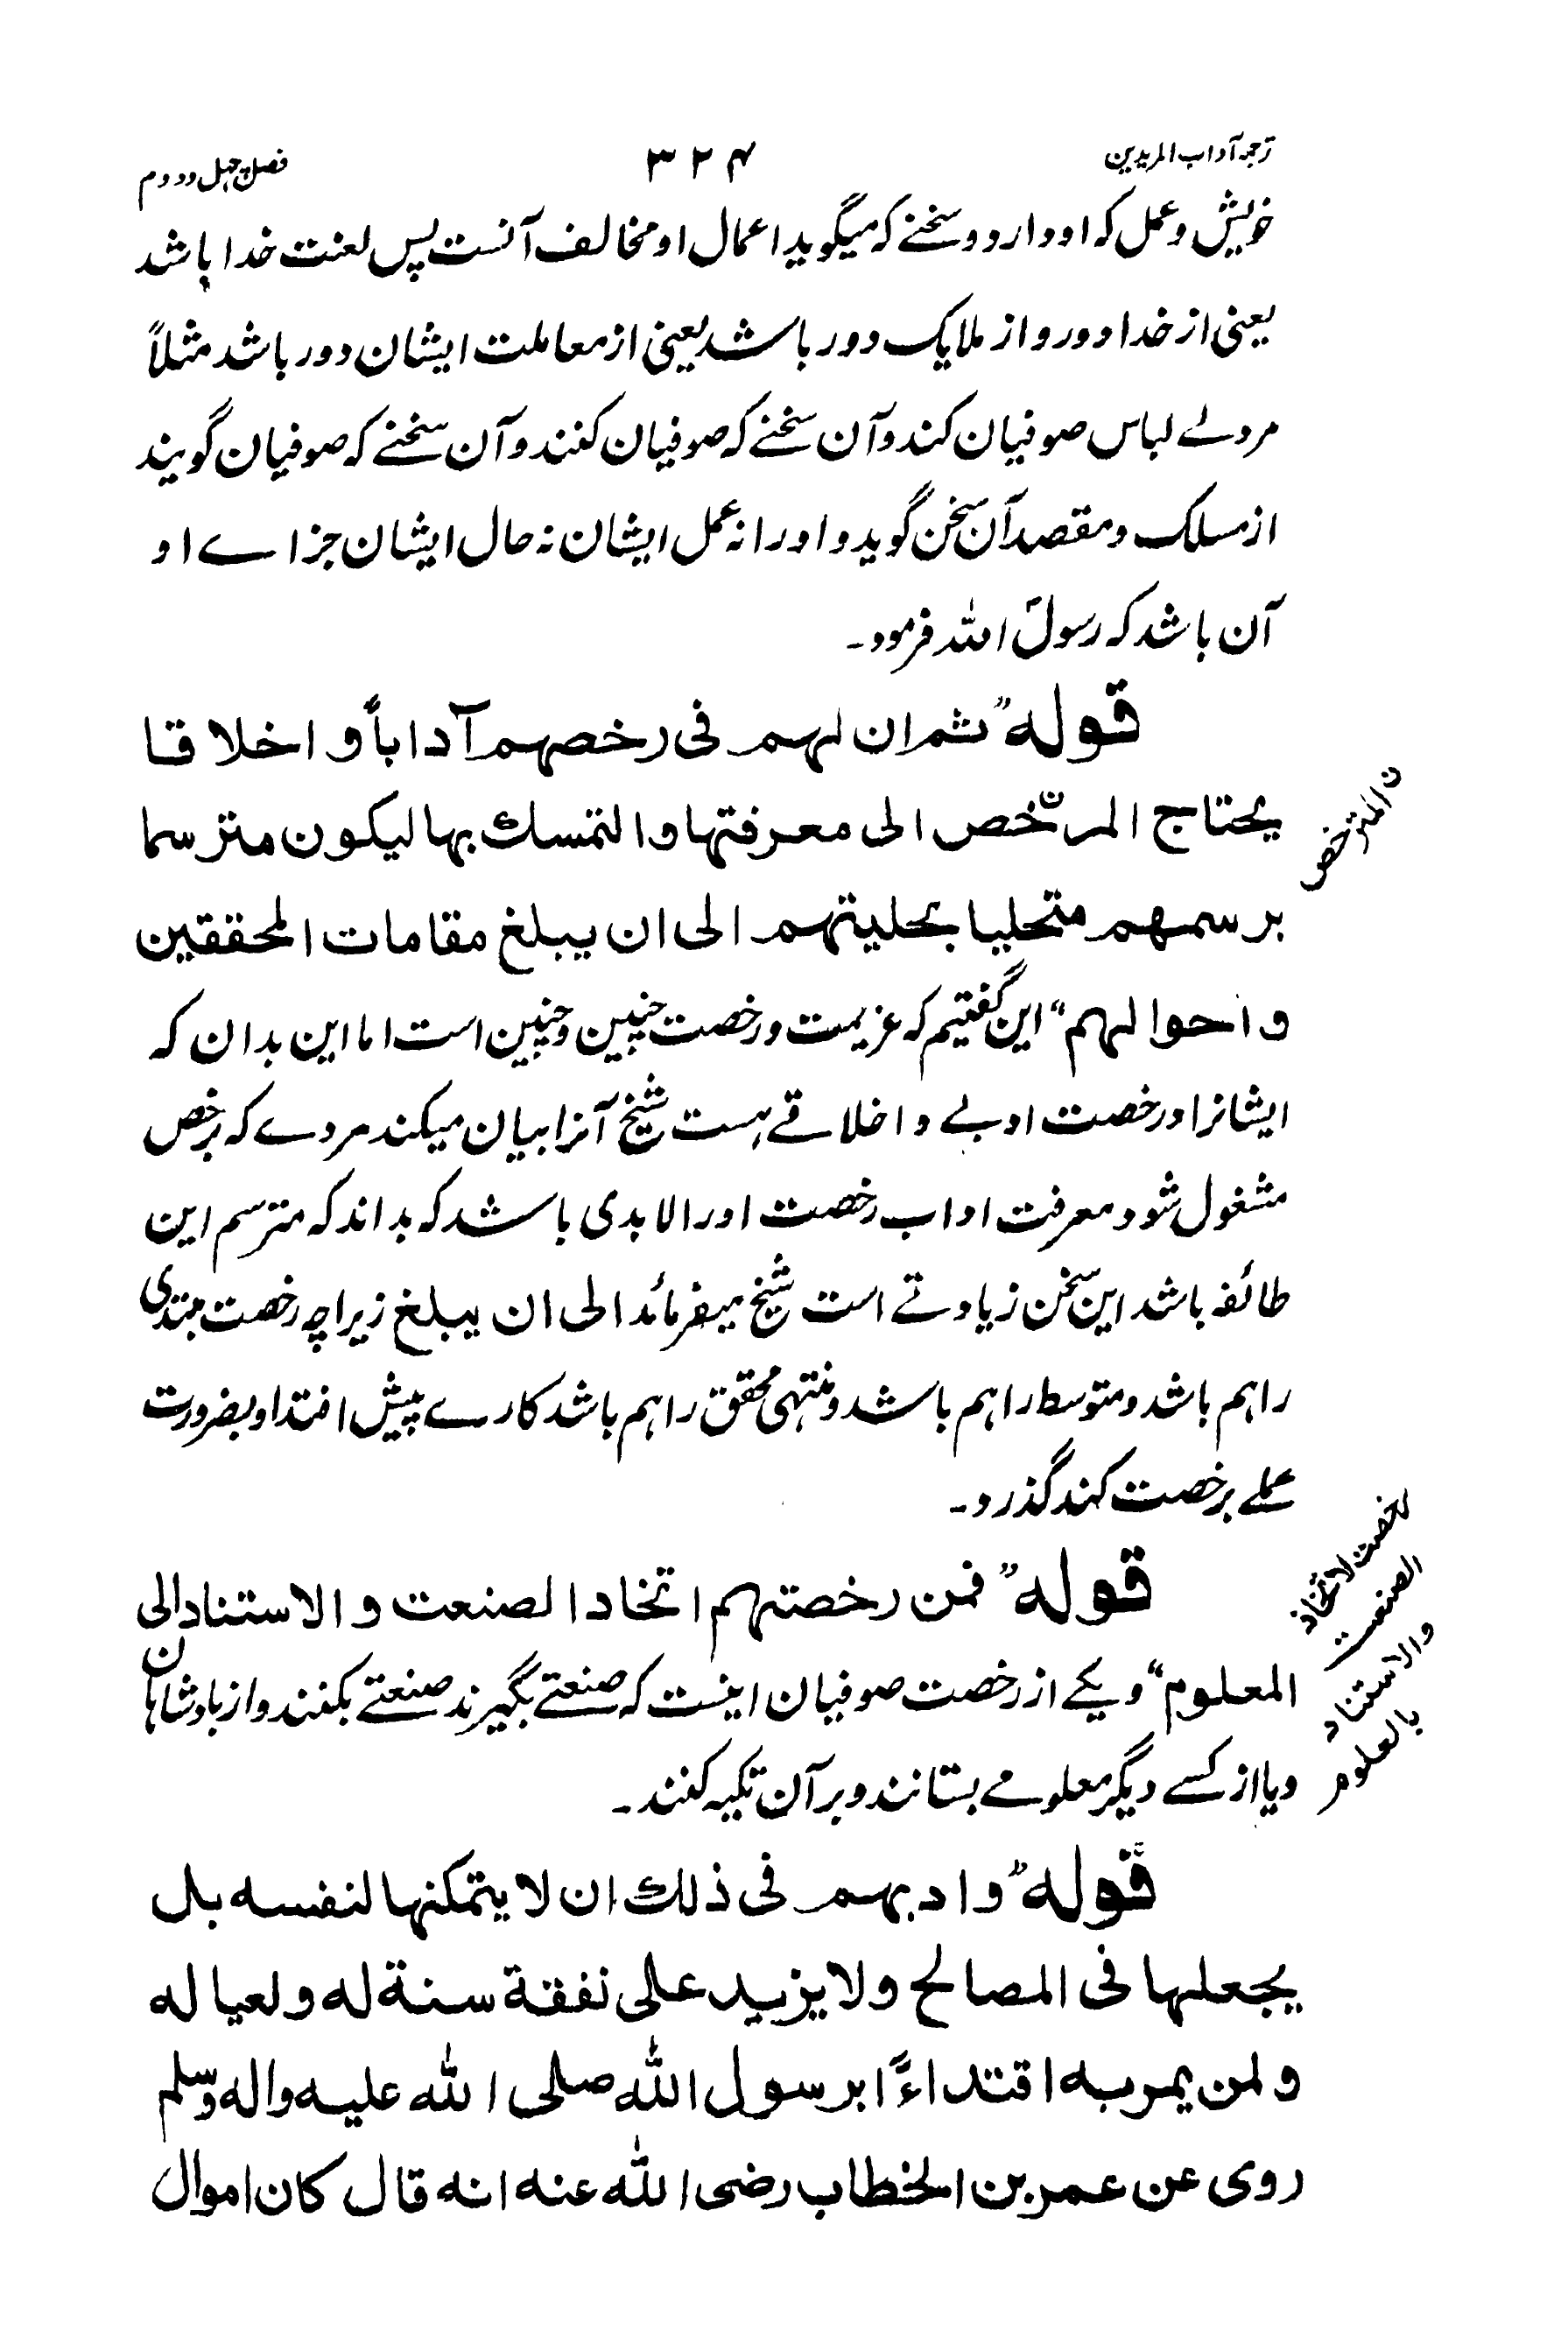 ترجمہ آداب المریدین
۳۲۴
فصل چہل و دوم
خویش و عمل که او دارد و سخنے که میگوید اعمال او مخالف آنست پس لعنت خدا باشد
یعنی از خدا دور و از ملایک دور باشد یعنی از معاملت ایشان دور باشد مثلاً
مردے لباس صوفیان کند و آن سخنے که صوفیان کنند و آن سخنے که صوفیان گویند
از مسلک و مقصد آن سخن گوید و او را نه عمل ایشان نه حال ایشان جزاے او
آن باشد که رسولؐ الله فرمود۔
قوله "ثم ان لهم فی رخصهم آداباً و اخلاقا
یحتاج المرخص الی معرفتها و التمسك بها لیکون مترسما
برسمهم متحلیا بحلیتهم الی ان یبلغ مقامات المحققین
و احوالهم" این گفتیم که عزیمت و رخصت چنین و چنین است اما این بدان که
ایشانرا در رخصت ادبے و اخلاقے هست شیخ آنرا بیان میکند مردے که برخص
مشغول شود معرفت اداب رخصت او را لابدی باشد که بداند که مترسم این
طائفه باشد این سخن زیادتے است شیخ میفرمائد الی ان یبلغ زیراچه رخصت مبتدی
را هم باشد و متوسط را هم باشد و منتهی محقق را هم باشد کارے پیش افتد او بضرورت
عملے برخصت کند گذرد۔
قوله "فمن رخصتهم اتخاد الصنعت و الاستناد الی
المعلوم" و یکے از رخصت صوفیان اینست که صنعتے بگیرند صنعتے بکنند و از بادشاهان
و یا از کسے دیگر معلومے بستانند و بر آن تکیه کنند۔
قوله "و ادبهم فی ذلك ان لا یتمکنها لنفسه بل
یجعلها فی المصالح و لا یزید علی نفقة سنة له و لعیاله
و لمن یمر به اقتداءً ابرسول الله صلی الله علیه و اله وسلم
روی عن عمر بن الخطاب رضی الله عنه انه قال کان اموال
ن المترخص
الصنعت
والاستناد
بالعلوم